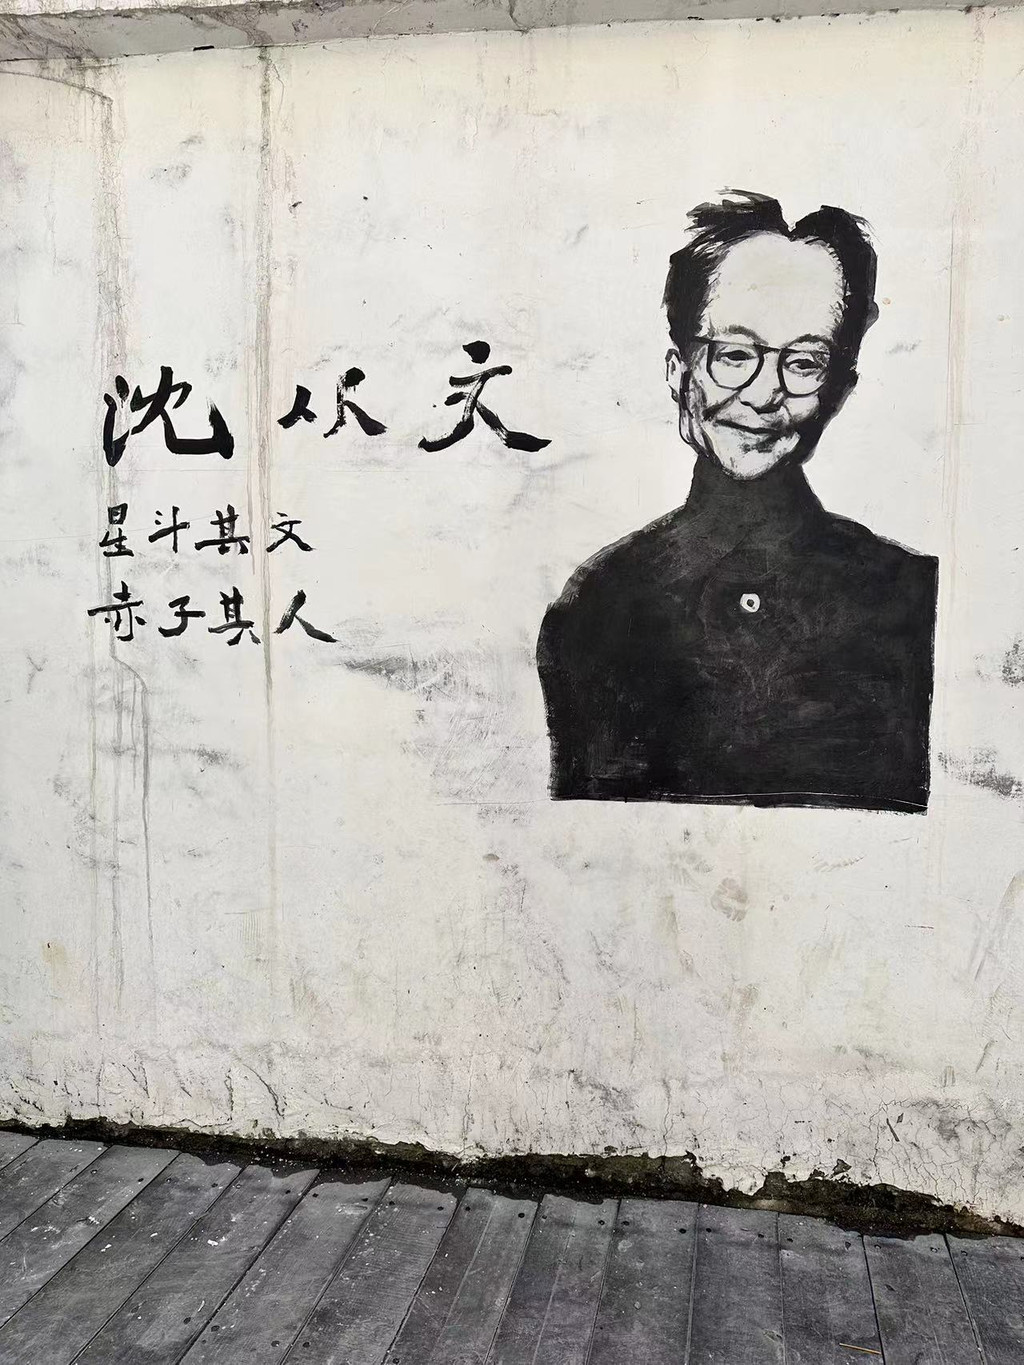 沈从文
星斗其文
赤子其人